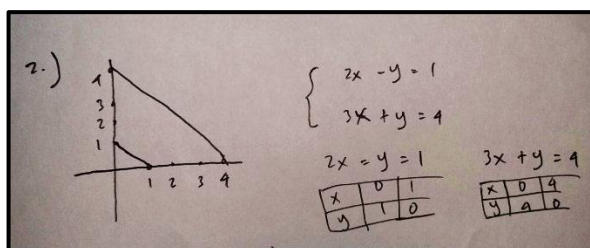 2.)
4
3
2
1
1 2 3 4
2x - y = 1
3x + y = 4
2x = y = 1
x 0 1
y 1 0
3x + y = 4
x 0 4
y 4 0